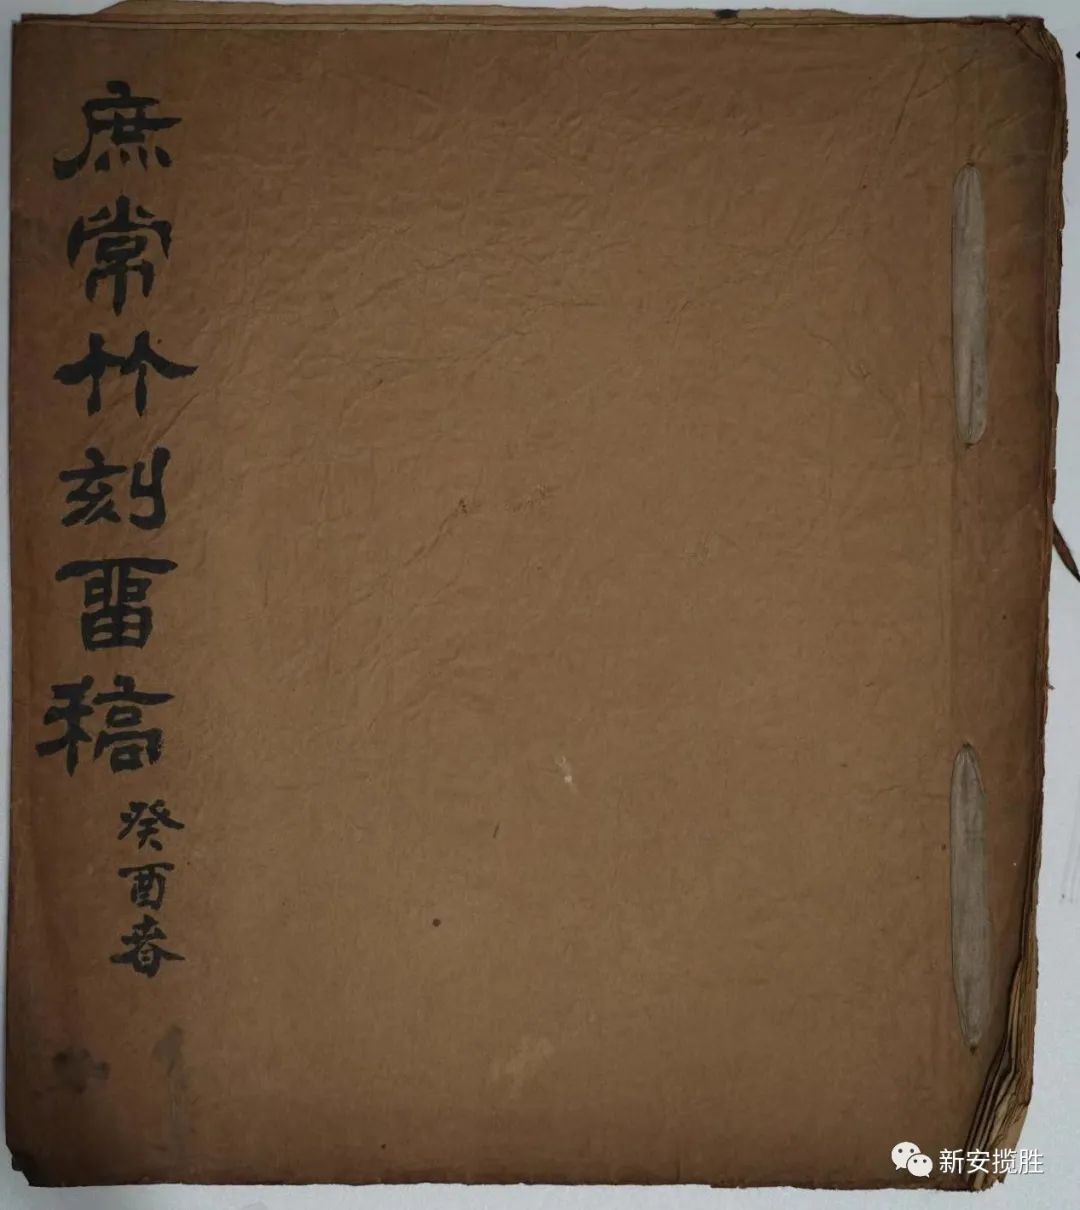 庶常竹刻畱稿
癸酉春
新安揽胜